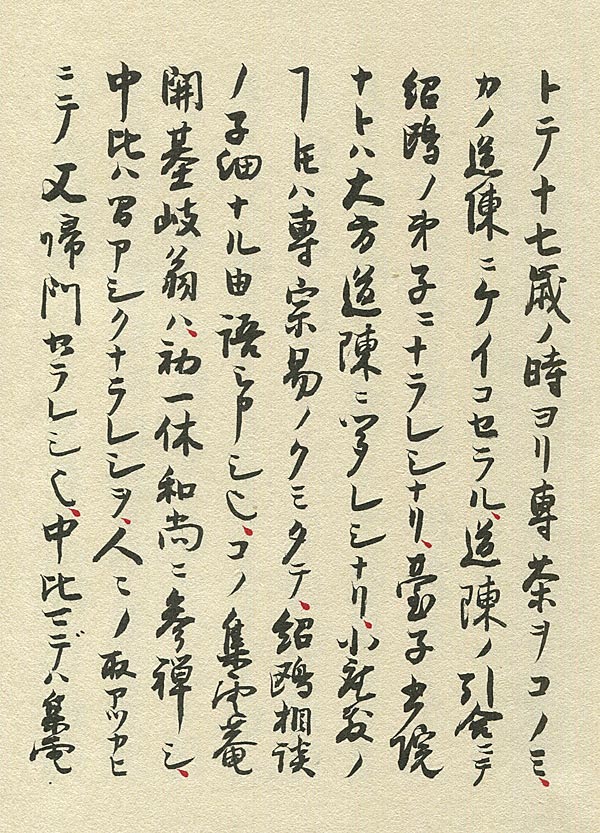 トテ十七歳ノ時ヨリ専茶ヲコノミ、
カノ道陳ニケイコセラル、道陳ノ引合ニテ
紹鴎ノ弟子ニナラレシナリ、臺子書院
ナトハ大方道陳ニ聞レシナリ、小座敷ノ
ヿ𪜈ハ専宗易ノクミタテ、紹鴎相談
ノ子細ナル由語ラレ申シ也、コノ集雲庵
開基岐翁ハ、初一休和尚ニ参禅シ、
中比ハ間アシクナラレシヲ、人〻ノ取アツカヒ
ニテ又帰門セラレシ也、中比マデハ集雲庵